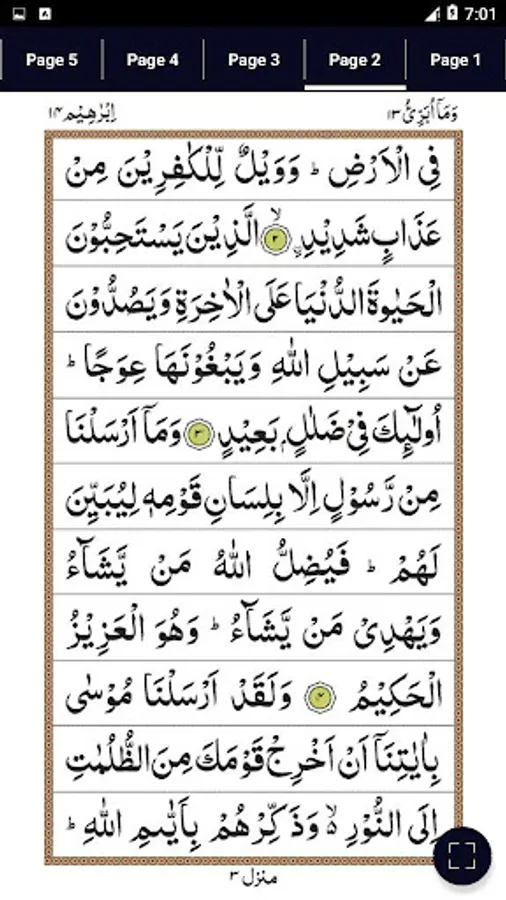 7:01
Page 5 Page 4 Page 3 Page 2 Page 1
وَمَاۤ اُبَرِّئُ ١٣ اِبْرٰهِيْم ١٤
فِى الْاَرْضِ ؕ وَوَيْلٌ لِّلْكٰفِرِيْنَ مِنْ
عَذَابٍ شَدِيْدِۙ ۟ ﴿٢﴾ الَّذِيْنَ يَسْتَحِبُّوْنَ
الْحَيٰوةَ الدُّنْيَا عَلَى الْاٰخِرَةِ وَيَصُدُّوْنَ
عَنْ سَبِيْلِ اللّٰهِ وَيَبْغُوْنَهَا عِوَجًا ؕ
اُولٰٓئِكَ فِىْ ضَلٰلٍۢ بَعِيْدٍ ﴿٣﴾ وَمَاۤ اَرْسَلْنَا
مِنْ رَّسُوْلٍ اِلَّا بِلِسَانِ قَوْمِهٖ لِيُبَيِّنَ
لَهُمْ ؕ فَيُضِلُّ اللّٰهُ مَنْ يَّشَآءُ
وَيَهْدِىْ مَنْ يَّشَآءُ ؕ وَهُوَ الْعَزِيْزُ
الْحَكِيْمُ ﴿٤﴾ وَلَقَدْ اَرْسَلْنَا مُوْسٰى
بِاٰيٰتِنَاۤ اَنْ اَخْرِجْ قَوْمَكَ مِنَ الظُّلُمٰتِ
اِلَى النُّوْرِ ۙ وَذَكِّرْهُمْ بِاَيّٰىمِ اللّٰهِ ؕ
منزل ٣